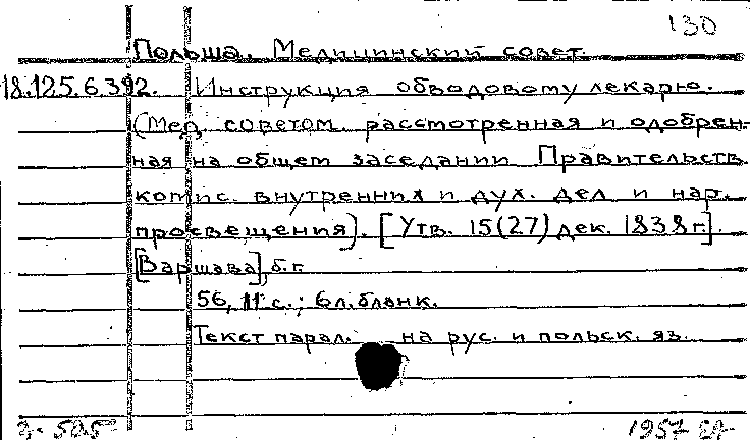 130
Польша. Медицинский совет.
18.125.6.392. Инструкция обводовому лекарю.
(Мед. советом рассмотренная и одобрен-
ная на общем заседании Правительств.
комис. внутренних и дух. дел и нар.
просвещения). [Утв. 15(27) дек. 1838 г.].
[Варшава], б.г.
56, II с.; 6 л. бланк.
Текст парал. на рус. и польск. яз.
1957